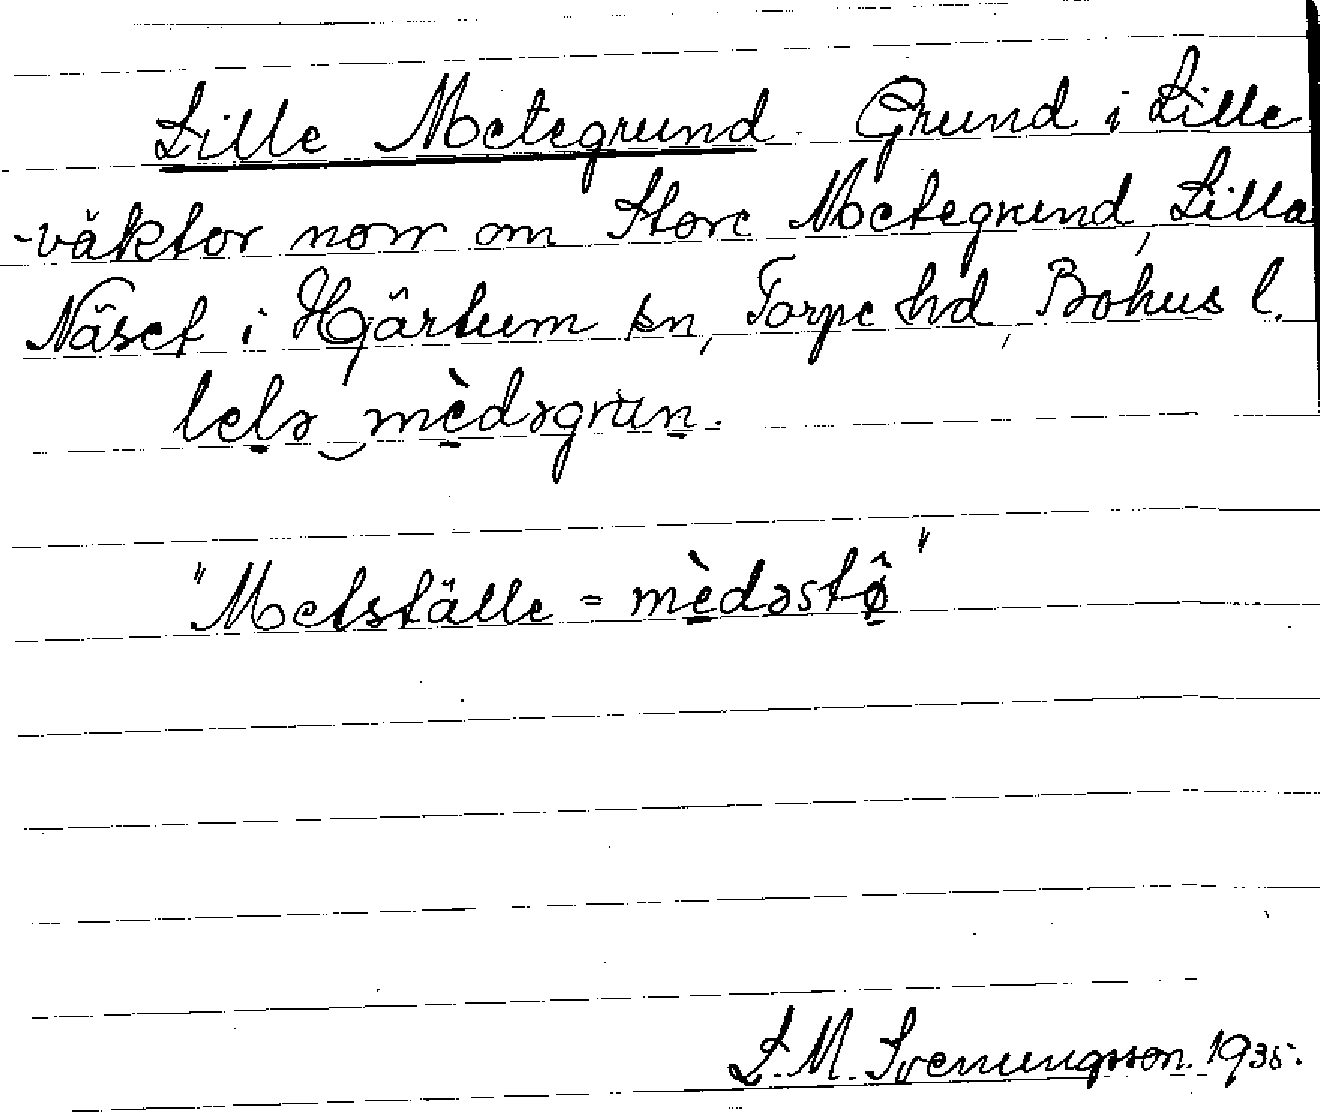 Lille Metegrund. Grund i Lille
-väktor norr om Store Metegrund, Lilla
Näset i Hjärtum sn, Torpe hd, Bohus l.
lelə mèdəgrun.
"Metställe = mèdəstø̂"
L. M. Svenungsson. 1935.